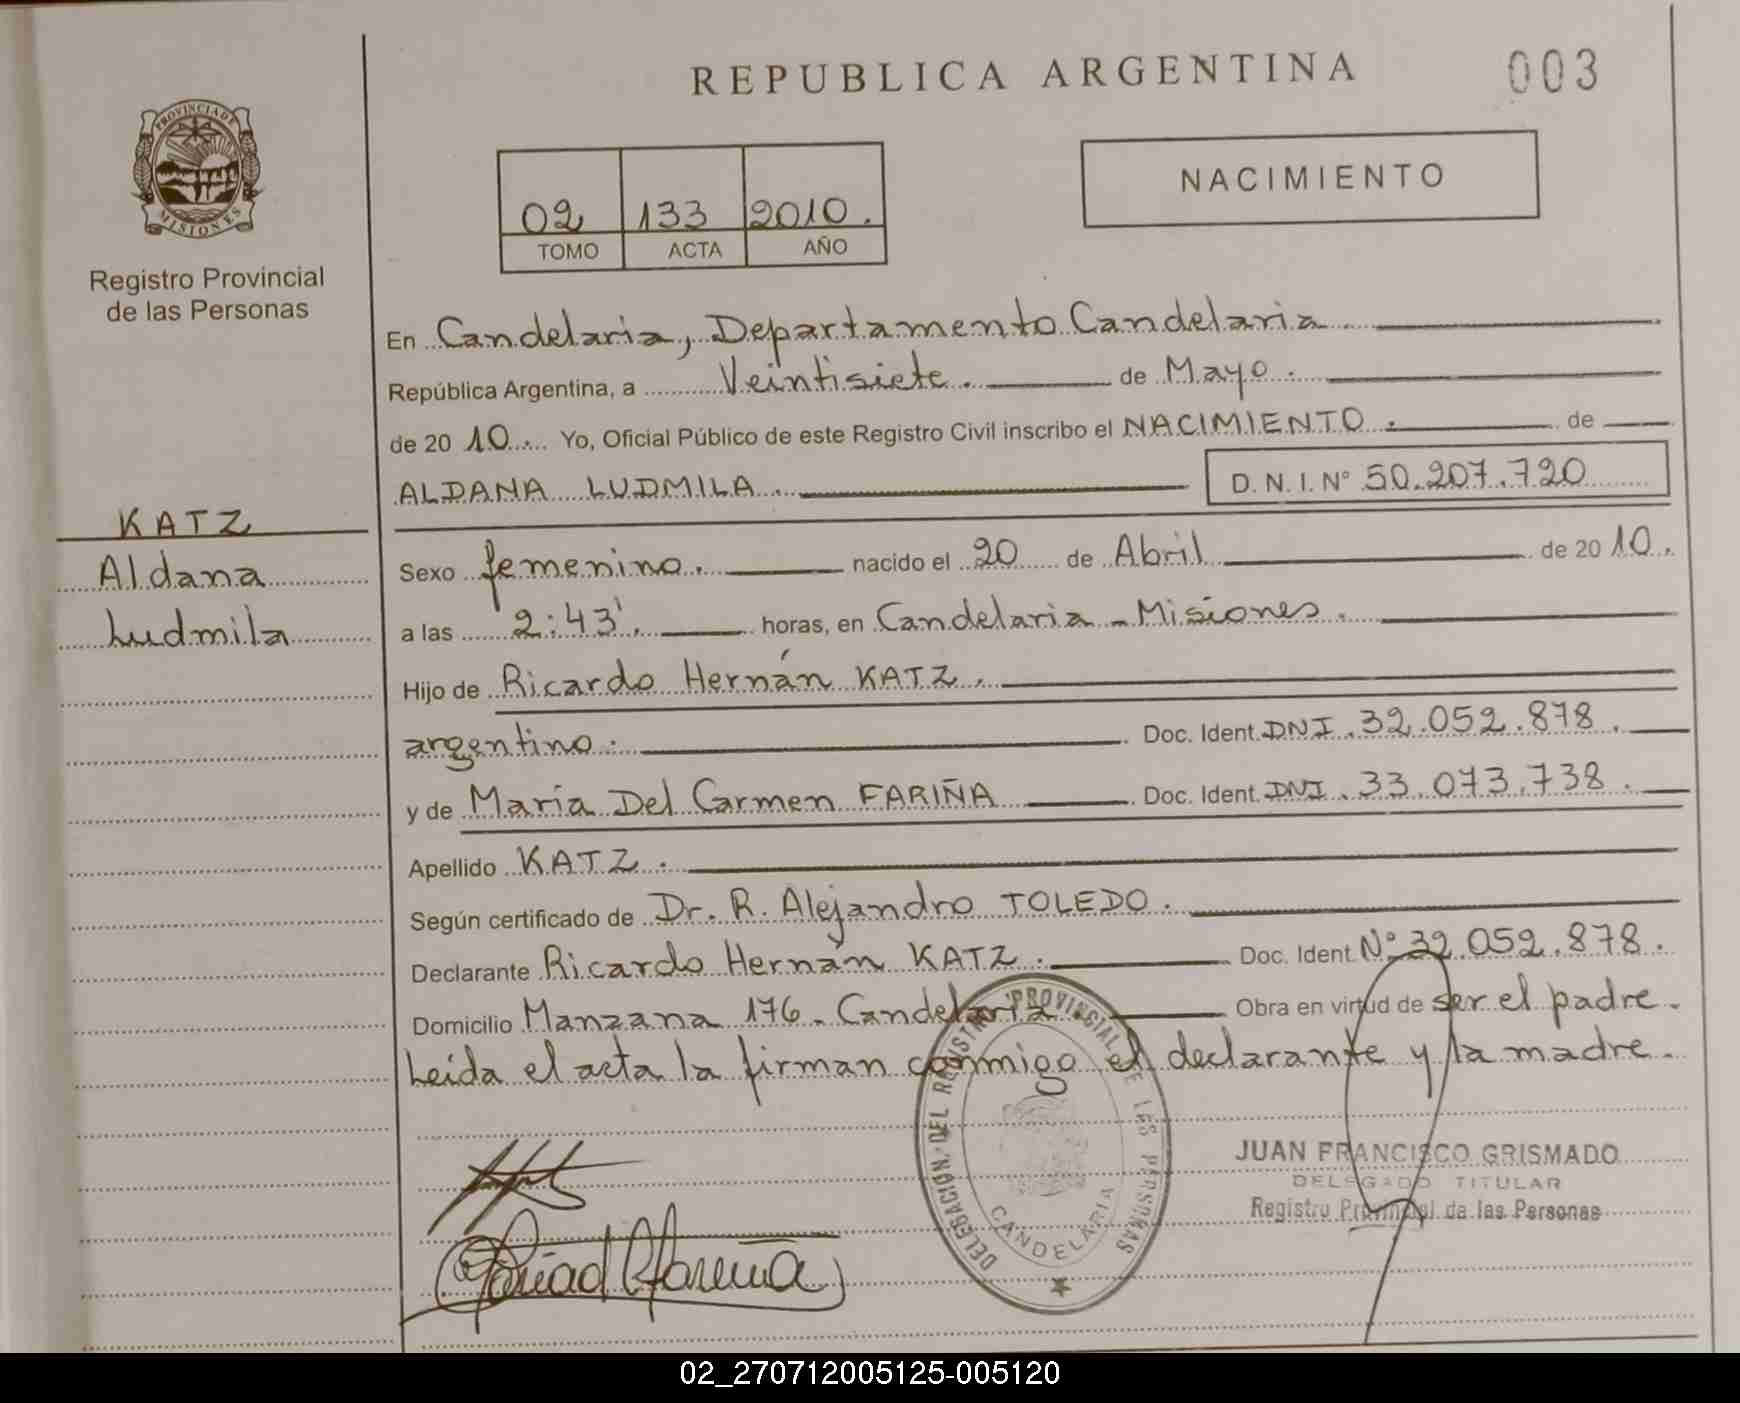 REPUBLICA ARGENTINA
003
PROVINCIA DE
MISIONES
Registro Provincial
de las Personas
NACIMIENTO
02 133 2010.
TOMO ACTA AÑO
En Candelaria, Departamento Candelaria
República Argentina, a Veintisiete. de Mayo.
de 20 10. Yo, Oficial Público de este Registro Civil inscribo el NACIMIENTO. de
ALDANA LUDMILA. D.N.I. Nº 50.207.720
KATZ
Aldana
Ludmila
Sexo femenino. nacido el 20 de Abril de 20 10.
a las 2:43'. horas, en Candelaria - Misiones.
Hijo de Ricardo Hernán KATZ.
argentino. Doc. Ident. DNI. 32.052.878.
y de María Del Carmen FARIÑA Doc. Ident. DNI. 33.073.738.
Apellido KATZ.
Según certificado de Dr. R. Alejandro TOLEDO.
Declarante Ricardo Hernán KATZ. Doc. Ident. Nº 32.052.878.
Domicilio Manzana 176. Candelaria Obra en virtud de ser el padre.
Leída el acta la firman conmigo el declarante y la madre.
DELEGACION DEL REGISTRO PROVINCIAL DE LAS PERSONAS
CANDELARIA
JUAN FRANCISCO GRISMADO
DELEGADO TITULAR
Registro Provincial de las Personas
02_270712005125-005120